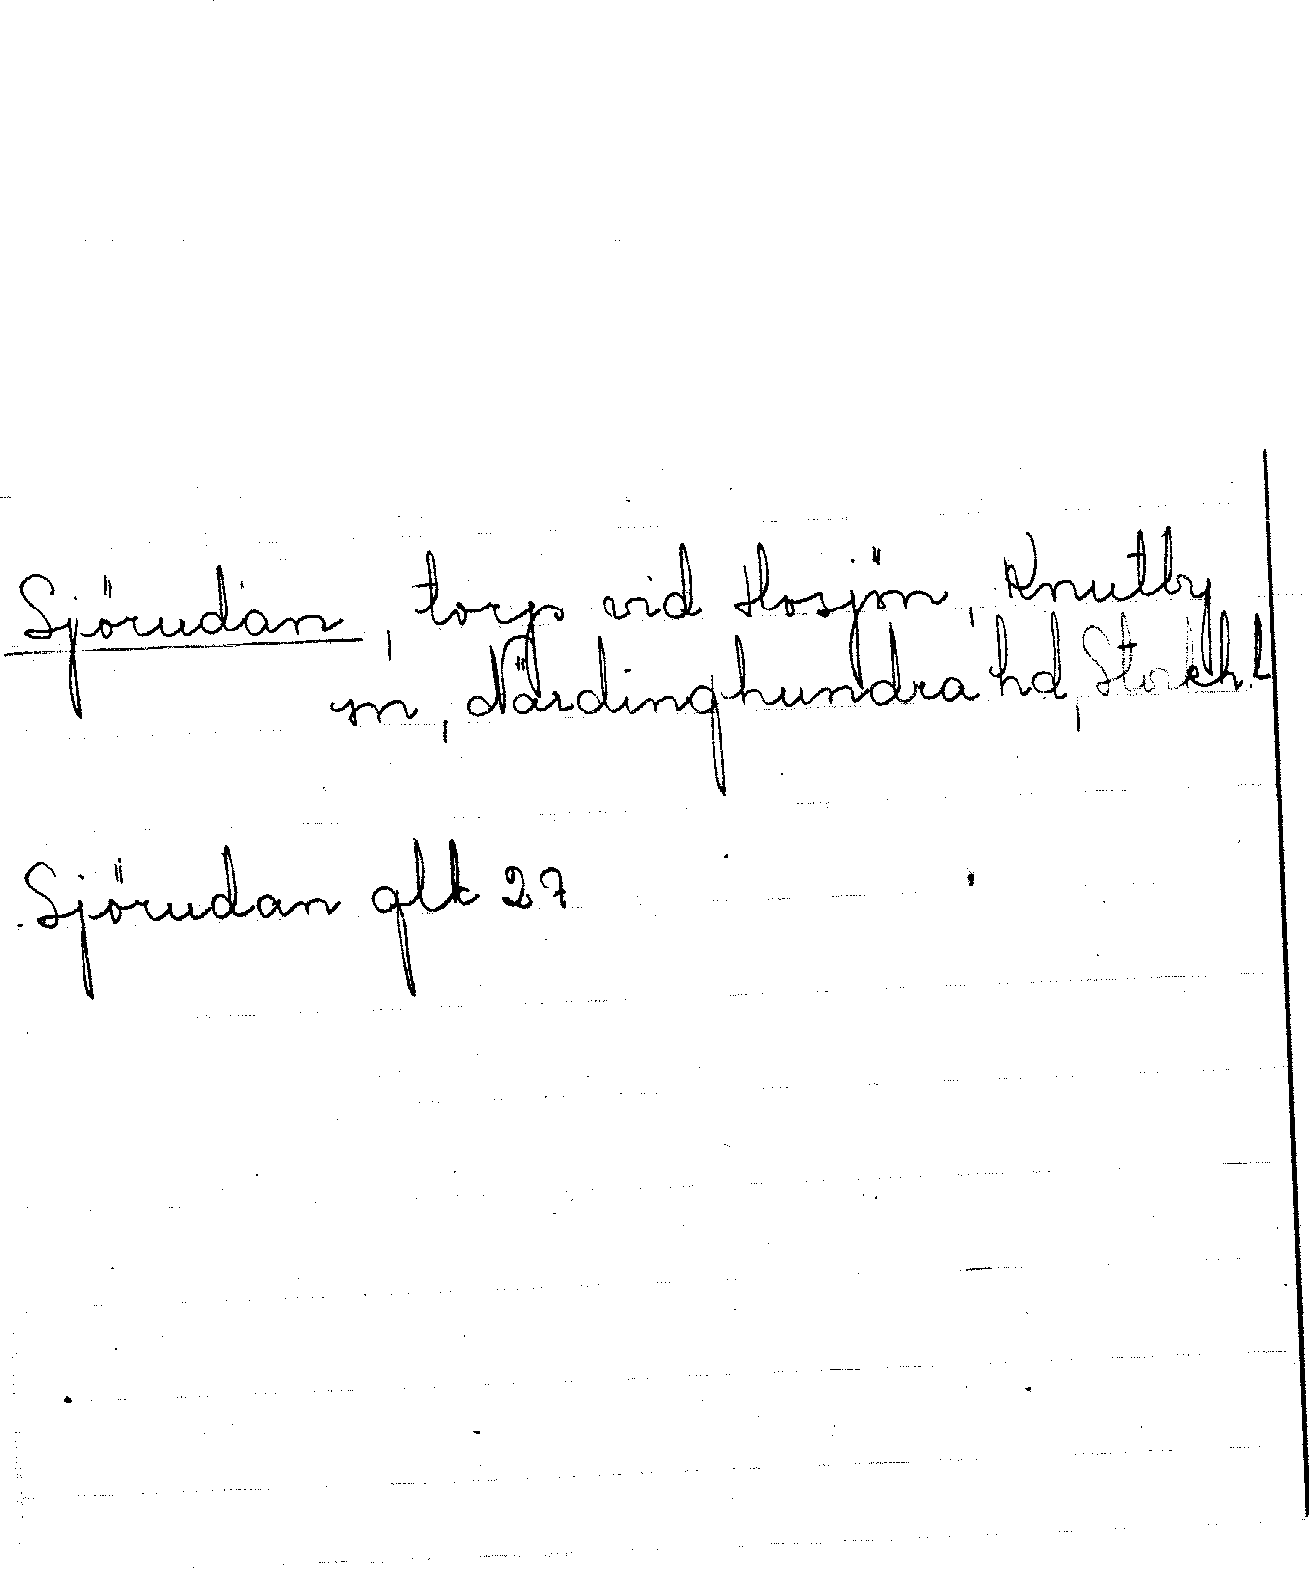 Sjörudan, torp vid Hosjön, Knutby
sn, Närdinghundra hd, Stockh. L
Sjörudan glk 27